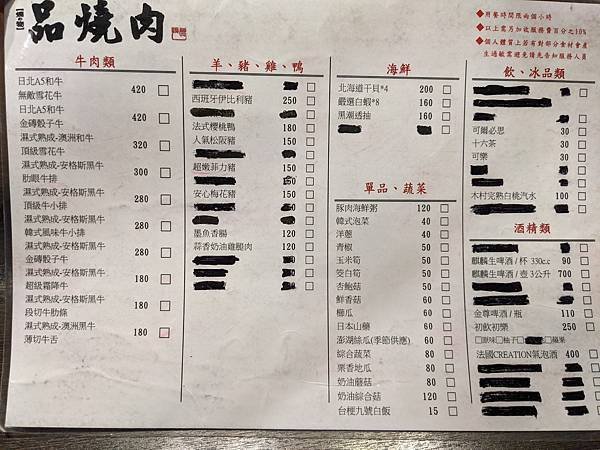 品燒肉
◆用餐時間限兩個小時
◆以上需另加收服務費百分之10%
◆個人體質上若有對部分食材會產
生過敏需避免請先告知服務人員
牛肉類
日北A5和牛
無敵雪花牛 420 □
日北A5和牛
金磚骰子牛 420 □
濕式熟成-澳洲和牛
頂級雪花牛 320 □
濕式熟成-安格斯黑牛
肋眼牛排 300 □
濕式熟成-安格斯黑牛
頂級牛小排 280 □
濕式熟成-安格斯黑牛
韓式風味牛小排 280 □
濕式熟成-安格斯黑牛
金磚骰子牛 280 □
濕式熟成-安格斯黑牛
超級霜降牛 210 □
濕式熟成-安格斯黑牛
段切牛肋條 180 □
濕式熟成-澳洲黑牛
薄切牛舌 180 □
羊、豬、雞、鴨
西班牙伊比利豬 250 □
法式櫻桃鴨 180 □
人氣松阪豬 150 □
超嫩菲力豬 150 □
安心梅花豬 130 □
墨魚香腸 120 □
蒜香奶油雞腿肉 120 □
海鮮
北海道干貝*4 200 □
嚴選白蝦*8 160 □
黑潮透抽 160 □
單品、蔬菜
豚肉海鮮粥 120 □
韓式泡菜 40 □
洋蔥 40 □
青椒 50 □
玉米筍 50 □
筊白筍 50 □
杏鮑菇 50 □
鮮香菇 60 □
櫛瓜 60 □
日本山藥 60 □
澎湖絲瓜(季節供應) 60 □
綜合蔬菜 80 □
栗香地瓜 80 □
奶油蘑菇 80 □
奶油綜合菇 120 □
台梗九號白飯 15 □
飲、冰品類
可爾必思 30 □
十六茶 30 □
可樂 30 □
木村完熟白桃汽水 100 □
酒精類
麒麟生啤酒/杯 330c.c 90 □
麒麟生啤酒/壺 3公升 700 □
金尊啤酒/瓶 110 □
初飲初樂 250 □
□原味□柚子 □蘋果
法國CREATION氣泡酒 400 □